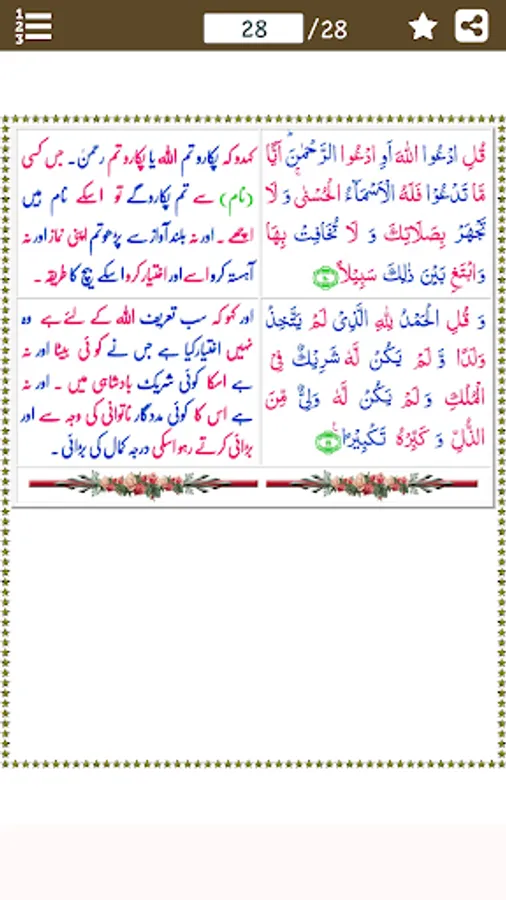 1
2
3
28 /28
قُلِ ادْعُوا اللّٰهَ اَوِ ادْعُوا الرَّحْمٰنَ ؕ اَیًّا
مَّا تَدْعُوْا فَلَهُ الْاَسْمَآءُ الْحُسْنٰی ۚ وَ لَا
تَجْهَرْ بِصَلَاتِكَ وَ لَا تُخَافِتْ بِهَا
وَابْتَغِ بَیْنَ ذٰلِكَ سَبِیْلًا
کہدو کہ پکارو تم اللہ یا پکارو تم رحمٰن۔ جس کسی
(نام) سے تم پکاروگے تو اسکے نام ہیں
اچھے۔ اور نہ بلند آواز سے پڑھو تم اپنی نماز اور نہ
آہستہ کرو اسے اور اختیار کرو اسکے بیچ کا طریقہ۔
وَ قُلِ الْحَمْدُ لِلّٰهِ الَّذِیْ لَمْ یَتَّخِذْ
وَلَدًا وَّ لَمْ یَكُنْ لَّهٗ شَرِیْكٌ فِی
الْمُلْكِ وَ لَمْ یَكُنْ لَّهٗ وَلِیٌّ مِّنَ
الذُّلِّ وَ كَبِّرْهُ تَكْبِیْرًا
اور کہو کہ سب تعریف اللہ کے لئے ہے وہ
نہیں اختیار کیا ہے جس نے کوئی بیٹا اور نہ
ہے اسکا کوئی شریک بادشاہی میں ۔ اور نہ
ہے اس کا کوئی مددگار ناتوانی کی وجہ سے اور
بڑائی کرتے رہو اسکی درجہ کمال کی بڑائی۔